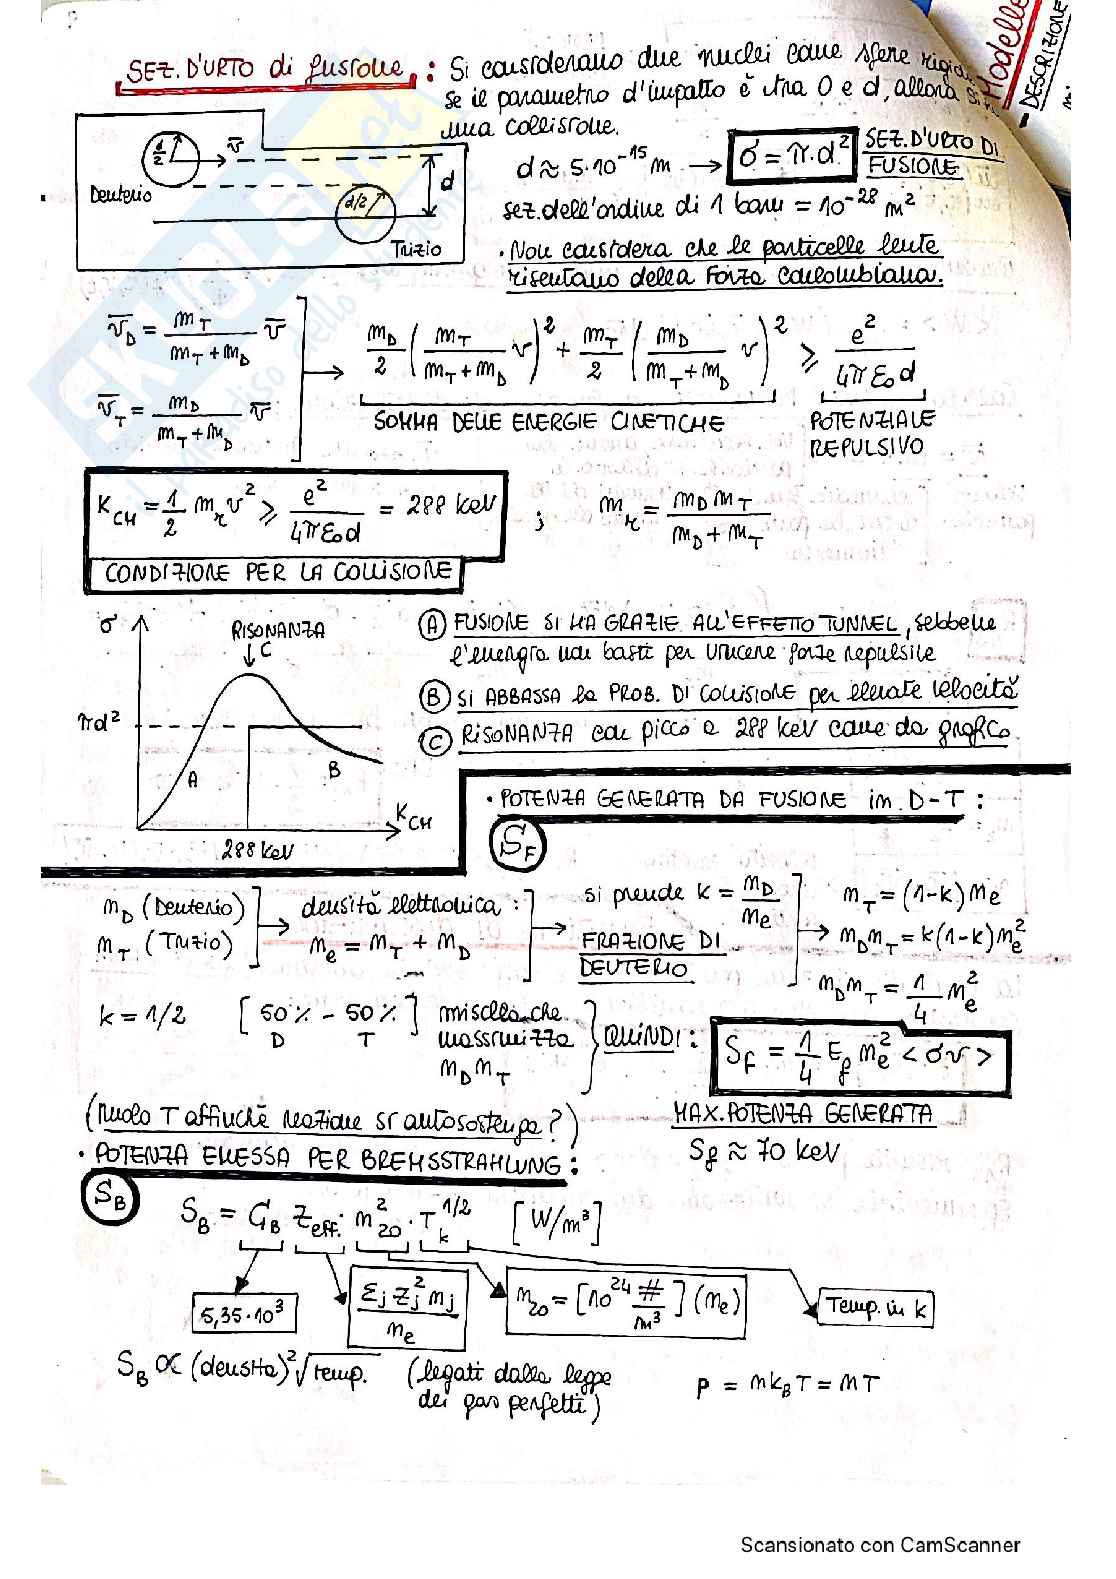 SEZ. D'URTO di fusione : Si considerano due nuclei come sfere rigide
Se il parametro d'impatto è tra 0 e d, allora si
una collisione.
d/2
v̅
Deuterio
d
d/2
Trizio
d ≈ 5·10⁻¹⁵ m → σ = π·d² SEZ. D'URTO DI FUSIONE
sez. dell'ordine di 1 barn = 10⁻²⁸ m²
· Non considera che le particelle lente
risentano della Forza coulombiana.
v̅_D = m_T/(m_T + m_D) v̅
v̅_T = m_D/(m_T + m_D) v̅
→ m_D/2 (m_T/(m_T + m_D) v)² + m_T/2 (m_D/(m_T + m_D) v)² ⩾ e²/(4πε₀d)
SOMMA DELLE ENERGIE CINETICHE
POTENZIALE REPULSIVO
K_CM = 1/2 m_r v² ⩾ e²/(4πε₀d) = 288 keV ; m_r = m_D m_T/(m_D + m_T)
CONDIZIONE PER LA COLLISIONE
σ
RISONANZA
C
πd²
A
B
K_CM
288 keV
Ⓐ FUSIONE SI HA GRAZIE ALL'EFFETTO TUNNEL, sebbene
l'energia non basti per vincere forze repulsive
Ⓑ SI ABBASSA la PROB. DI COLLISIONE per elevate velocità
Ⓒ RISONANZA con picco a 288 keV come da grafico.
· POTENZA GENERATA DA FUSIONE in D-T :
S_F
n_D (Deuterio)
n_T (Trizio)
→ densità elettronica :
n_e = n_T + n_D
→ si prende k = n_D/n_e
FRAZIONE DI DEUTERIO
→ n_T = (1-k) n_e
n_D n_T = k(1-k) n_e²
n_D n_T = 1/4 n_e²
k = 1/2 [50% - 50%] miscela che
D T massimizza
n_D n_T
QUINDI : S_F = 1/4 E_f n_e² <σv>
MAX. POTENZA GENERATA
S_f ≈ 70 keV
(Ruolo T affinchè reazione si autosostenga?)
· POTENZA EMESSA PER BREMSSTRAHLUNG :
S_B
S_B = C_B Z_eff. n²_20 · T_k^1/2 [W/m³]
5,35·10³
Σ_j Z_j² n_j / n_e
n_20 = [10²⁴ #/m³] (n_e)
Temp. in k
S_B ∝ (densità)² √temp. (legati dalla legge
dei gas perfetti)
p = n k_B T = nT
Modello
- DESCRIZIONE
SKUOLA.net
il paradiso dello studente
Scansionato con CamScanner